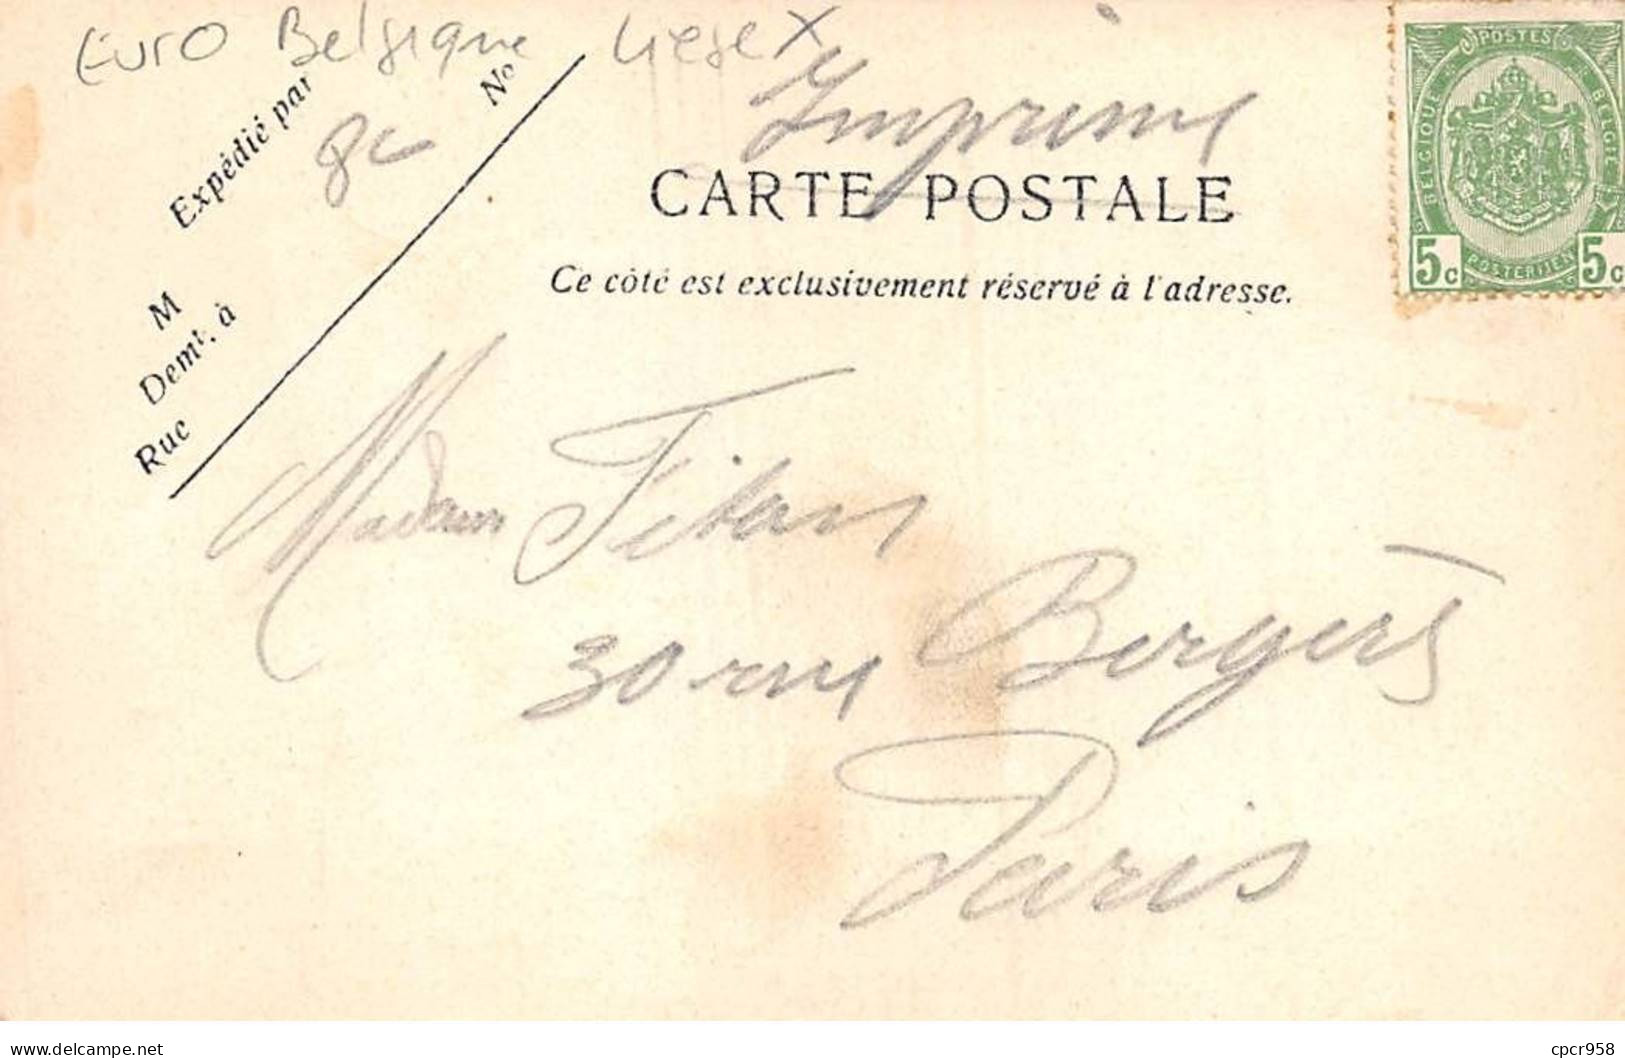 Euro Belgique Liege X
8c
Imprimé
Expédié par
No
M
Demt. à
Rue
CARTE POSTALE
Ce côté est exclusivement réservé à l'adresse.
POSTES
BELGIQUE
BELGIË
POSTERIJEN
5c 5c
Madame
30 rue Bergers
Paris
delcampe.net
cpcr958